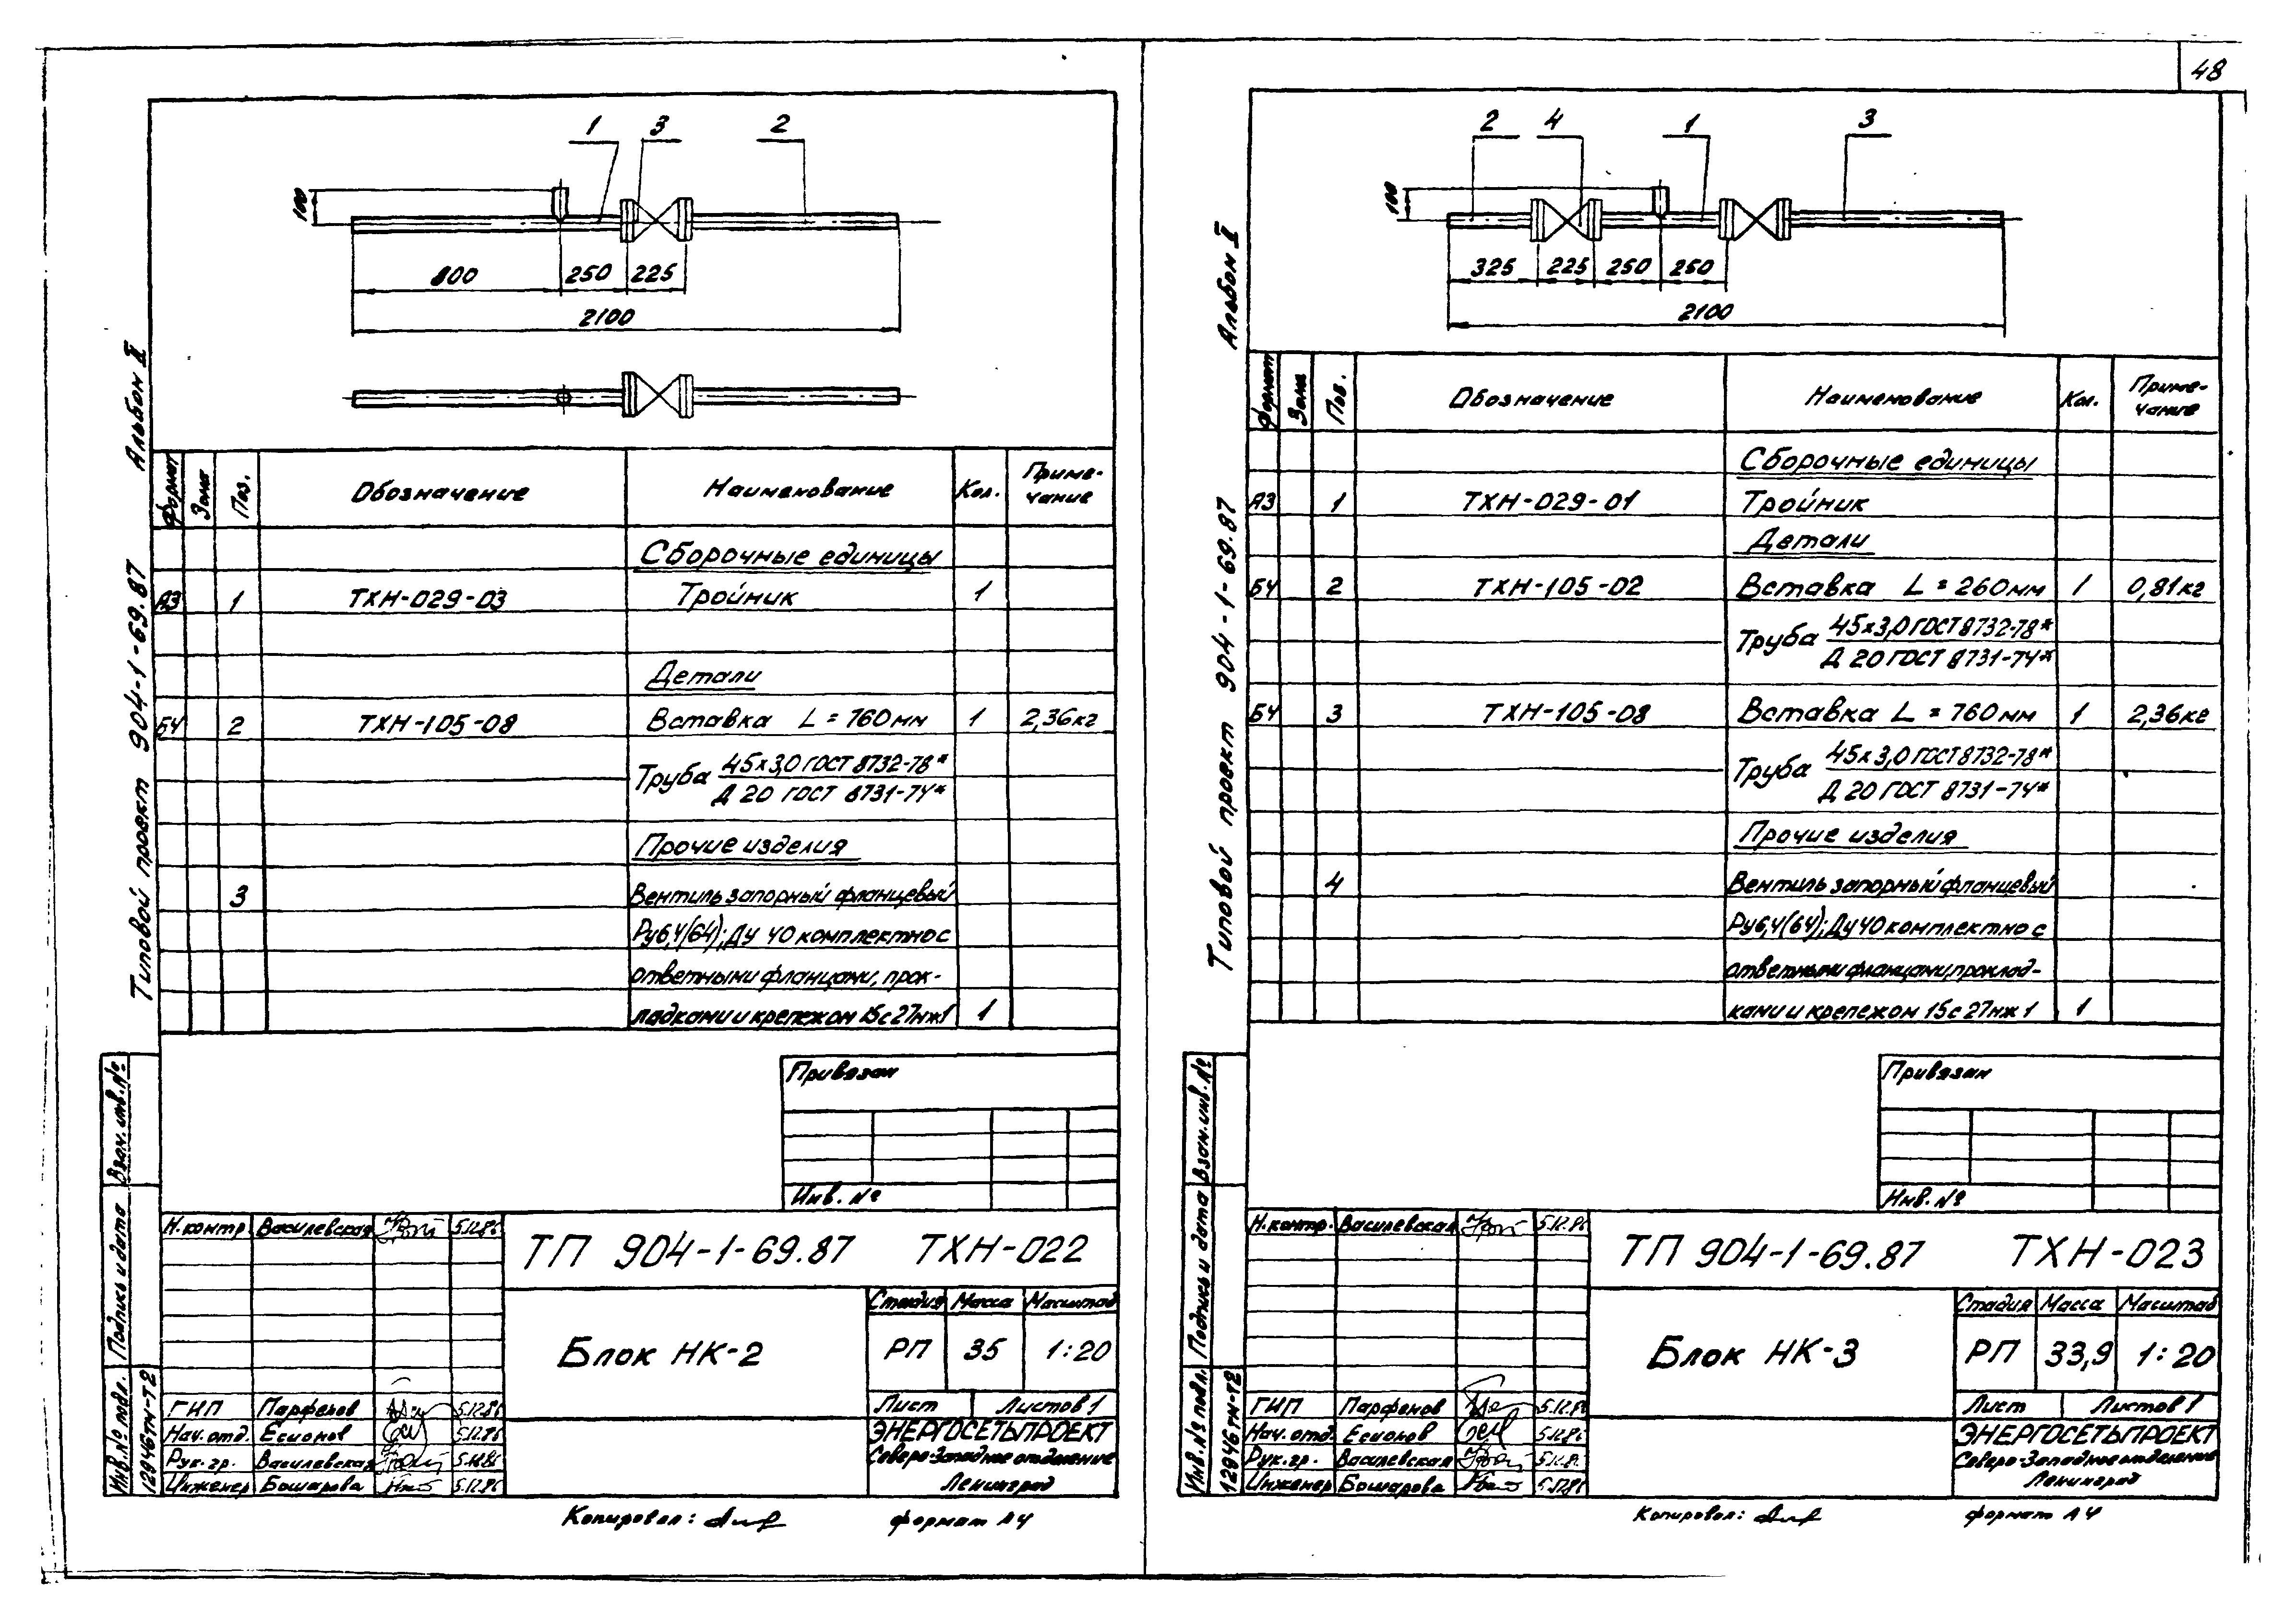 48
1 3 2
100
800 250 225
2100
Формат Зона Поз. Обозначение Наименование Кол. Приме-
чание
Сборочные единицы
А3 1 ТХН-029-03 Тройник 1
Детали
БЧ 2 ТХН-105-08 Вставка L = 760 мм 1 2,36 кг
Труба 45х3,0 ГОСТ 8732-78*
Д 20 ГОСТ 8731-74*
Прочие изделия
3 Вентиль запорный фланцевый
Ру6,4(64); Ду 40 комплектно с
ответными фланцами, прок-
ладками и крепежом 15с27нж1 1
Привязан
Инв. №
Н.контр. Василевская 5.12.86
ТП 904-1-69.87 ТХН-022
Стадия Масса Масштаб
Блок НК-2 РП 35 1:20
Лист Листов 1
ГИП Парфенов 5.12.86
Нач. отд. Есионов 5.12.86
Рук. гр. Василевская 5.12.86
Инженер Бошарова 5.12.86
ЭНЕРГОСЕТЬПРОЕКТ
Северо-Западное отделение
Ленинград
Копировал: формат А4
Типовой проект 904-1-69.87 Альбом II
Инв. № подл. Подпись и дата Взам. инв. №
12946тм-т2
2 4 1 3
100
325 225 250 250
2100
Формат Зона Поз. Обозначение Наименование Кол. Приме-
чание
Сборочные единицы
А3 1 ТХН-029-01 Тройник
Детали
БЧ 2 ТХН-105-02 Вставка L = 260 мм 1 0,81 кг
Труба 45х3,0 ГОСТ 8732-78*
Д 20 ГОСТ 8731-74*
БЧ 3 ТХН-105-08 Вставка L = 760 мм 1 2,36 кг
Труба 45х3,0 ГОСТ 8732-78*
Д 20 ГОСТ 8731-74*
Прочие изделия
4 Вентиль запорный фланцевый
Ру6,4(64); Ду 40 комплектно с
ответными фланцами, проклад-
ками и крепежом 15с27нж1 1
Привязан
Инв. №
Н.контр. Василевская 5.12.86
ТП 904-1-69.87 ТХН-023
Стадия Масса Масштаб
Блок НК-3 РП 33,9 1:20
Лист Листов 1
ГИП Парфенов 5.12.86
Нач. отд. Есионов 5.12.86
Рук. гр. Василевская 5.12.86
Инженер Бошарова 5.12.86
ЭНЕРГОСЕТЬПРОЕКТ
Северо-Западное отделение
Ленинград
Копировал: формат А4
Типовой проект 904-1-69.87 Альбом II
Инв. № подл. Подпись и дата Взам. инв. №
12946тм-т2